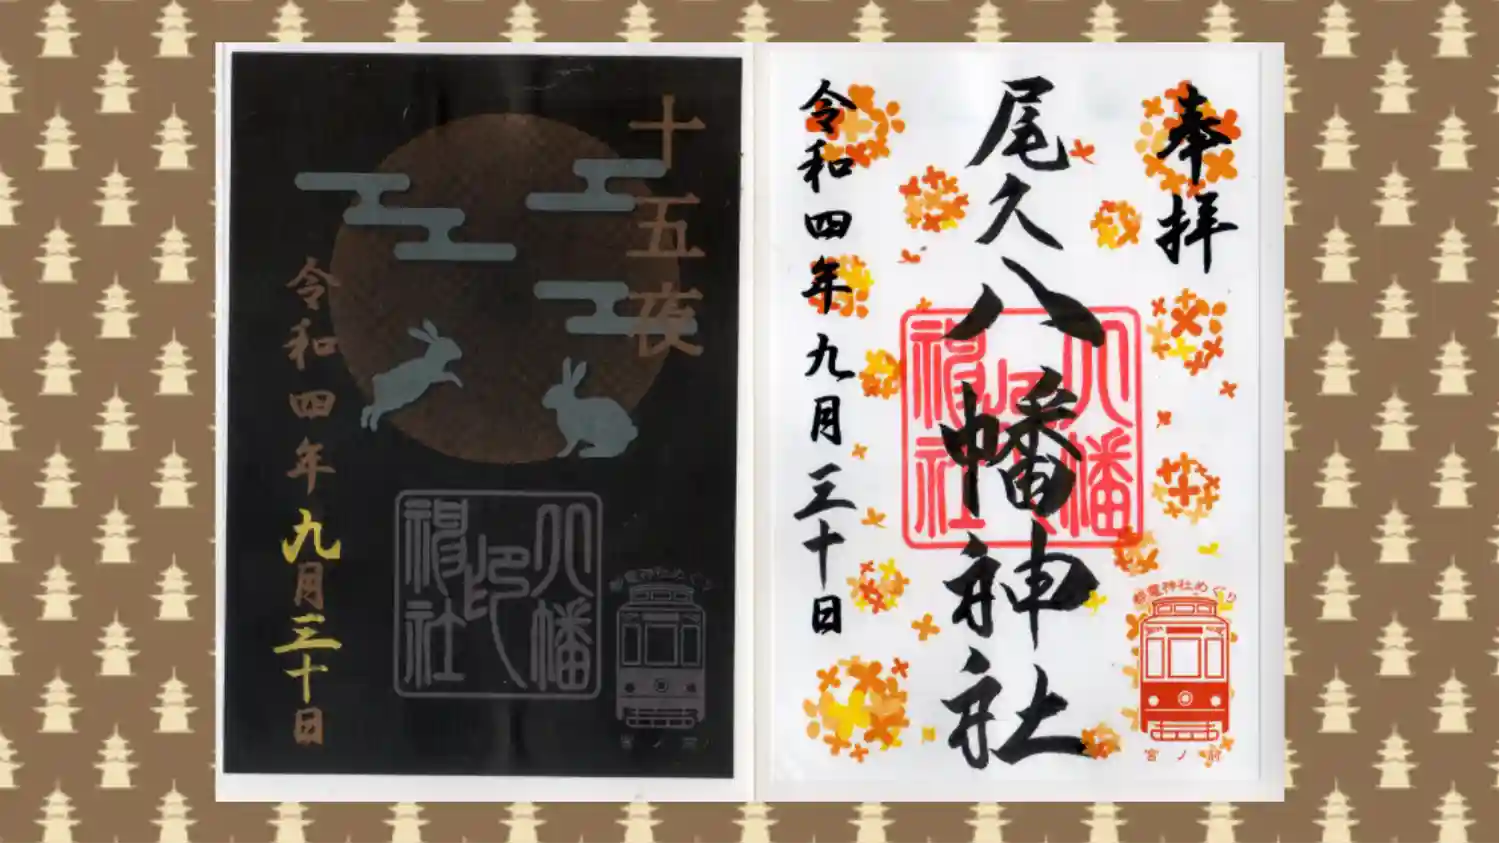 十五夜
令和四年九月三十日
八幡
印
神社
都電神社めぐり
宮ノ前
奉拝
尾久八幡神社
令和四年九月三十日
八幡
神社
都電神社めぐり
宮ノ前